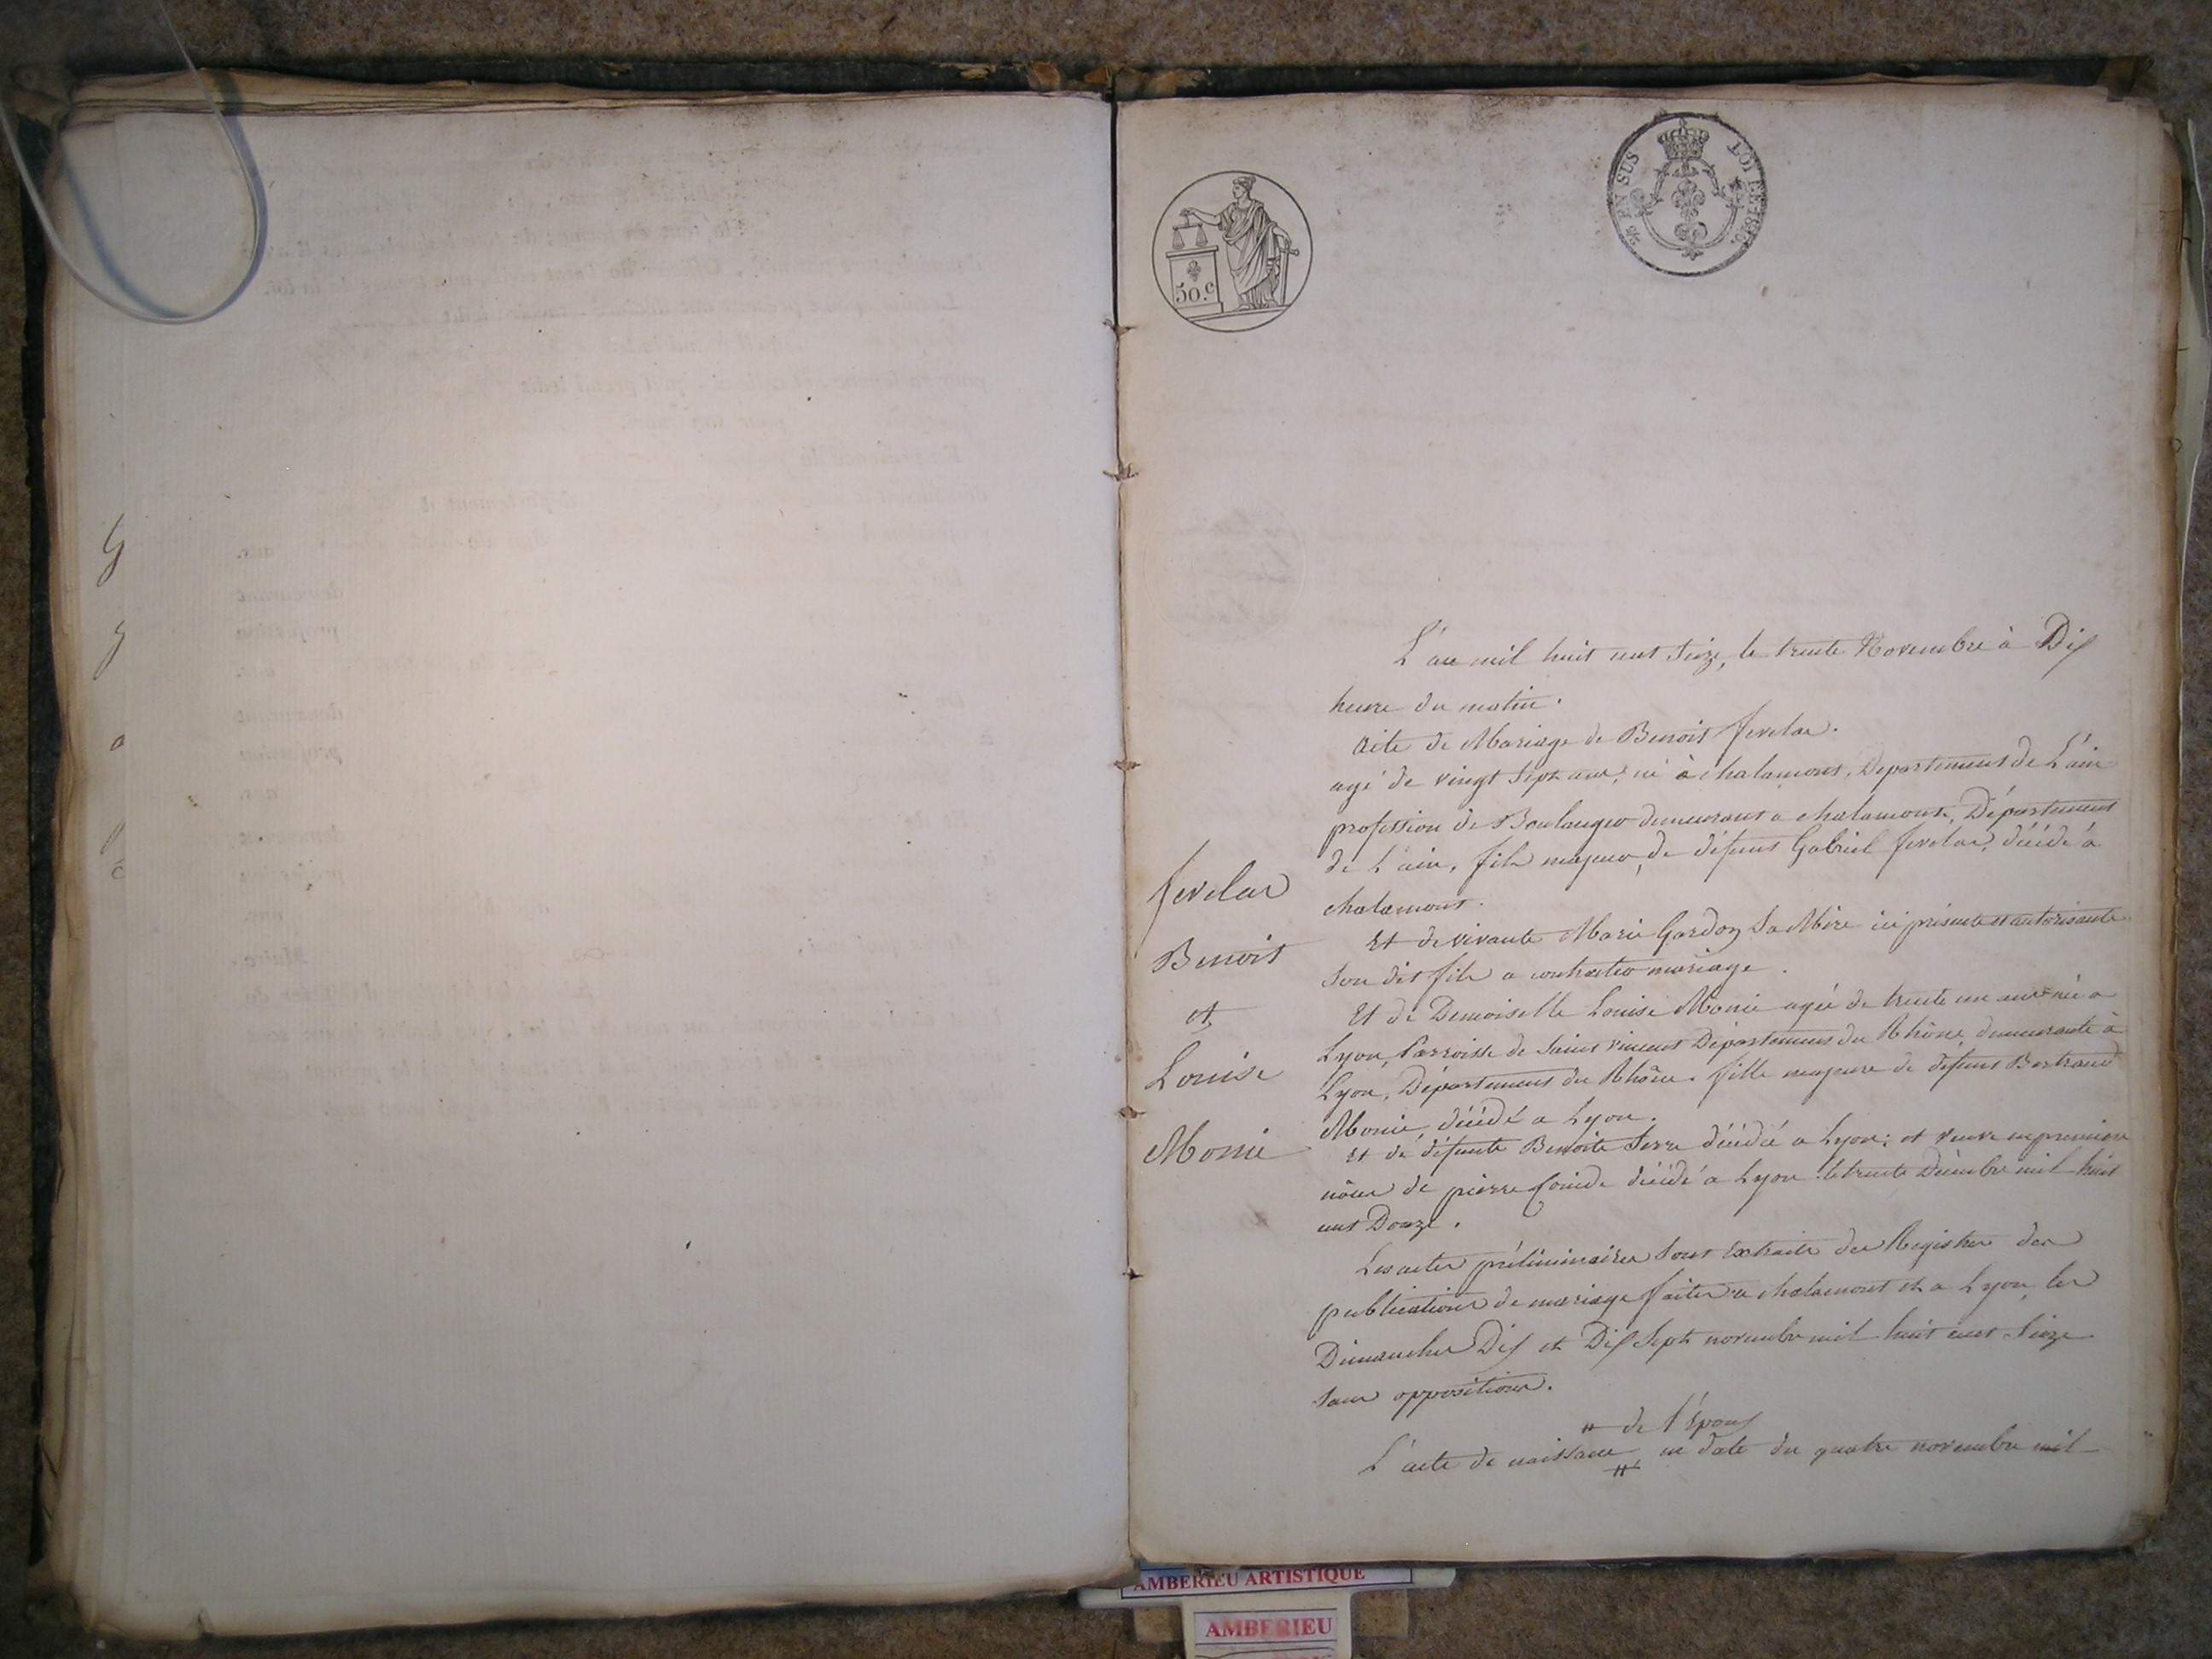 50.c
EN SUS
LOI DE 1816.
L'an mil huit cent Seize, le trente Novembre à Dix
heure du matin.
Acte de Mariage de Benoit fevelas.
agé de vingt Sept ans, né à chalamont, Departement de L'ain
profession de Boulanger demeurant a chalamont, Département
de L'ain, fils majeur, de défunt Gabriel fevelas, décédé à
chalamont.
Et de vivante Marie Gardon Sa Mère ici présente et autorisante
Son dit fils a contracter mariage.
Et de Demoiselle Louise Monie agée de trente un ans née a
Lyon, Parroisse de Saint vincent Département du Rhône, demeurante à
Lyon, Département du Rhône. fille majeure de défunt Bertrand
Monié, décédé a Lyon.
Et de défunte Benoite Serre décédée a Lyon; et veuve en première
nôces de pierre décédé a Lyon le trente Décembre mil huit
cent Douze.
Les actes préliminaires Sont Extraits des Registres des
publications de mariage faites a chalamont et a Lyon, les
Dimanches Dix et Dix Sept novembre mil huit cent Seize
Sans oppositions.
" de l'Epoux
L'acte de naissance en date du quatre novembre mil
fevelas
Benoit
et
Louise
Monie
AMBERIEU ARTISTIQUE
AMBERIEU